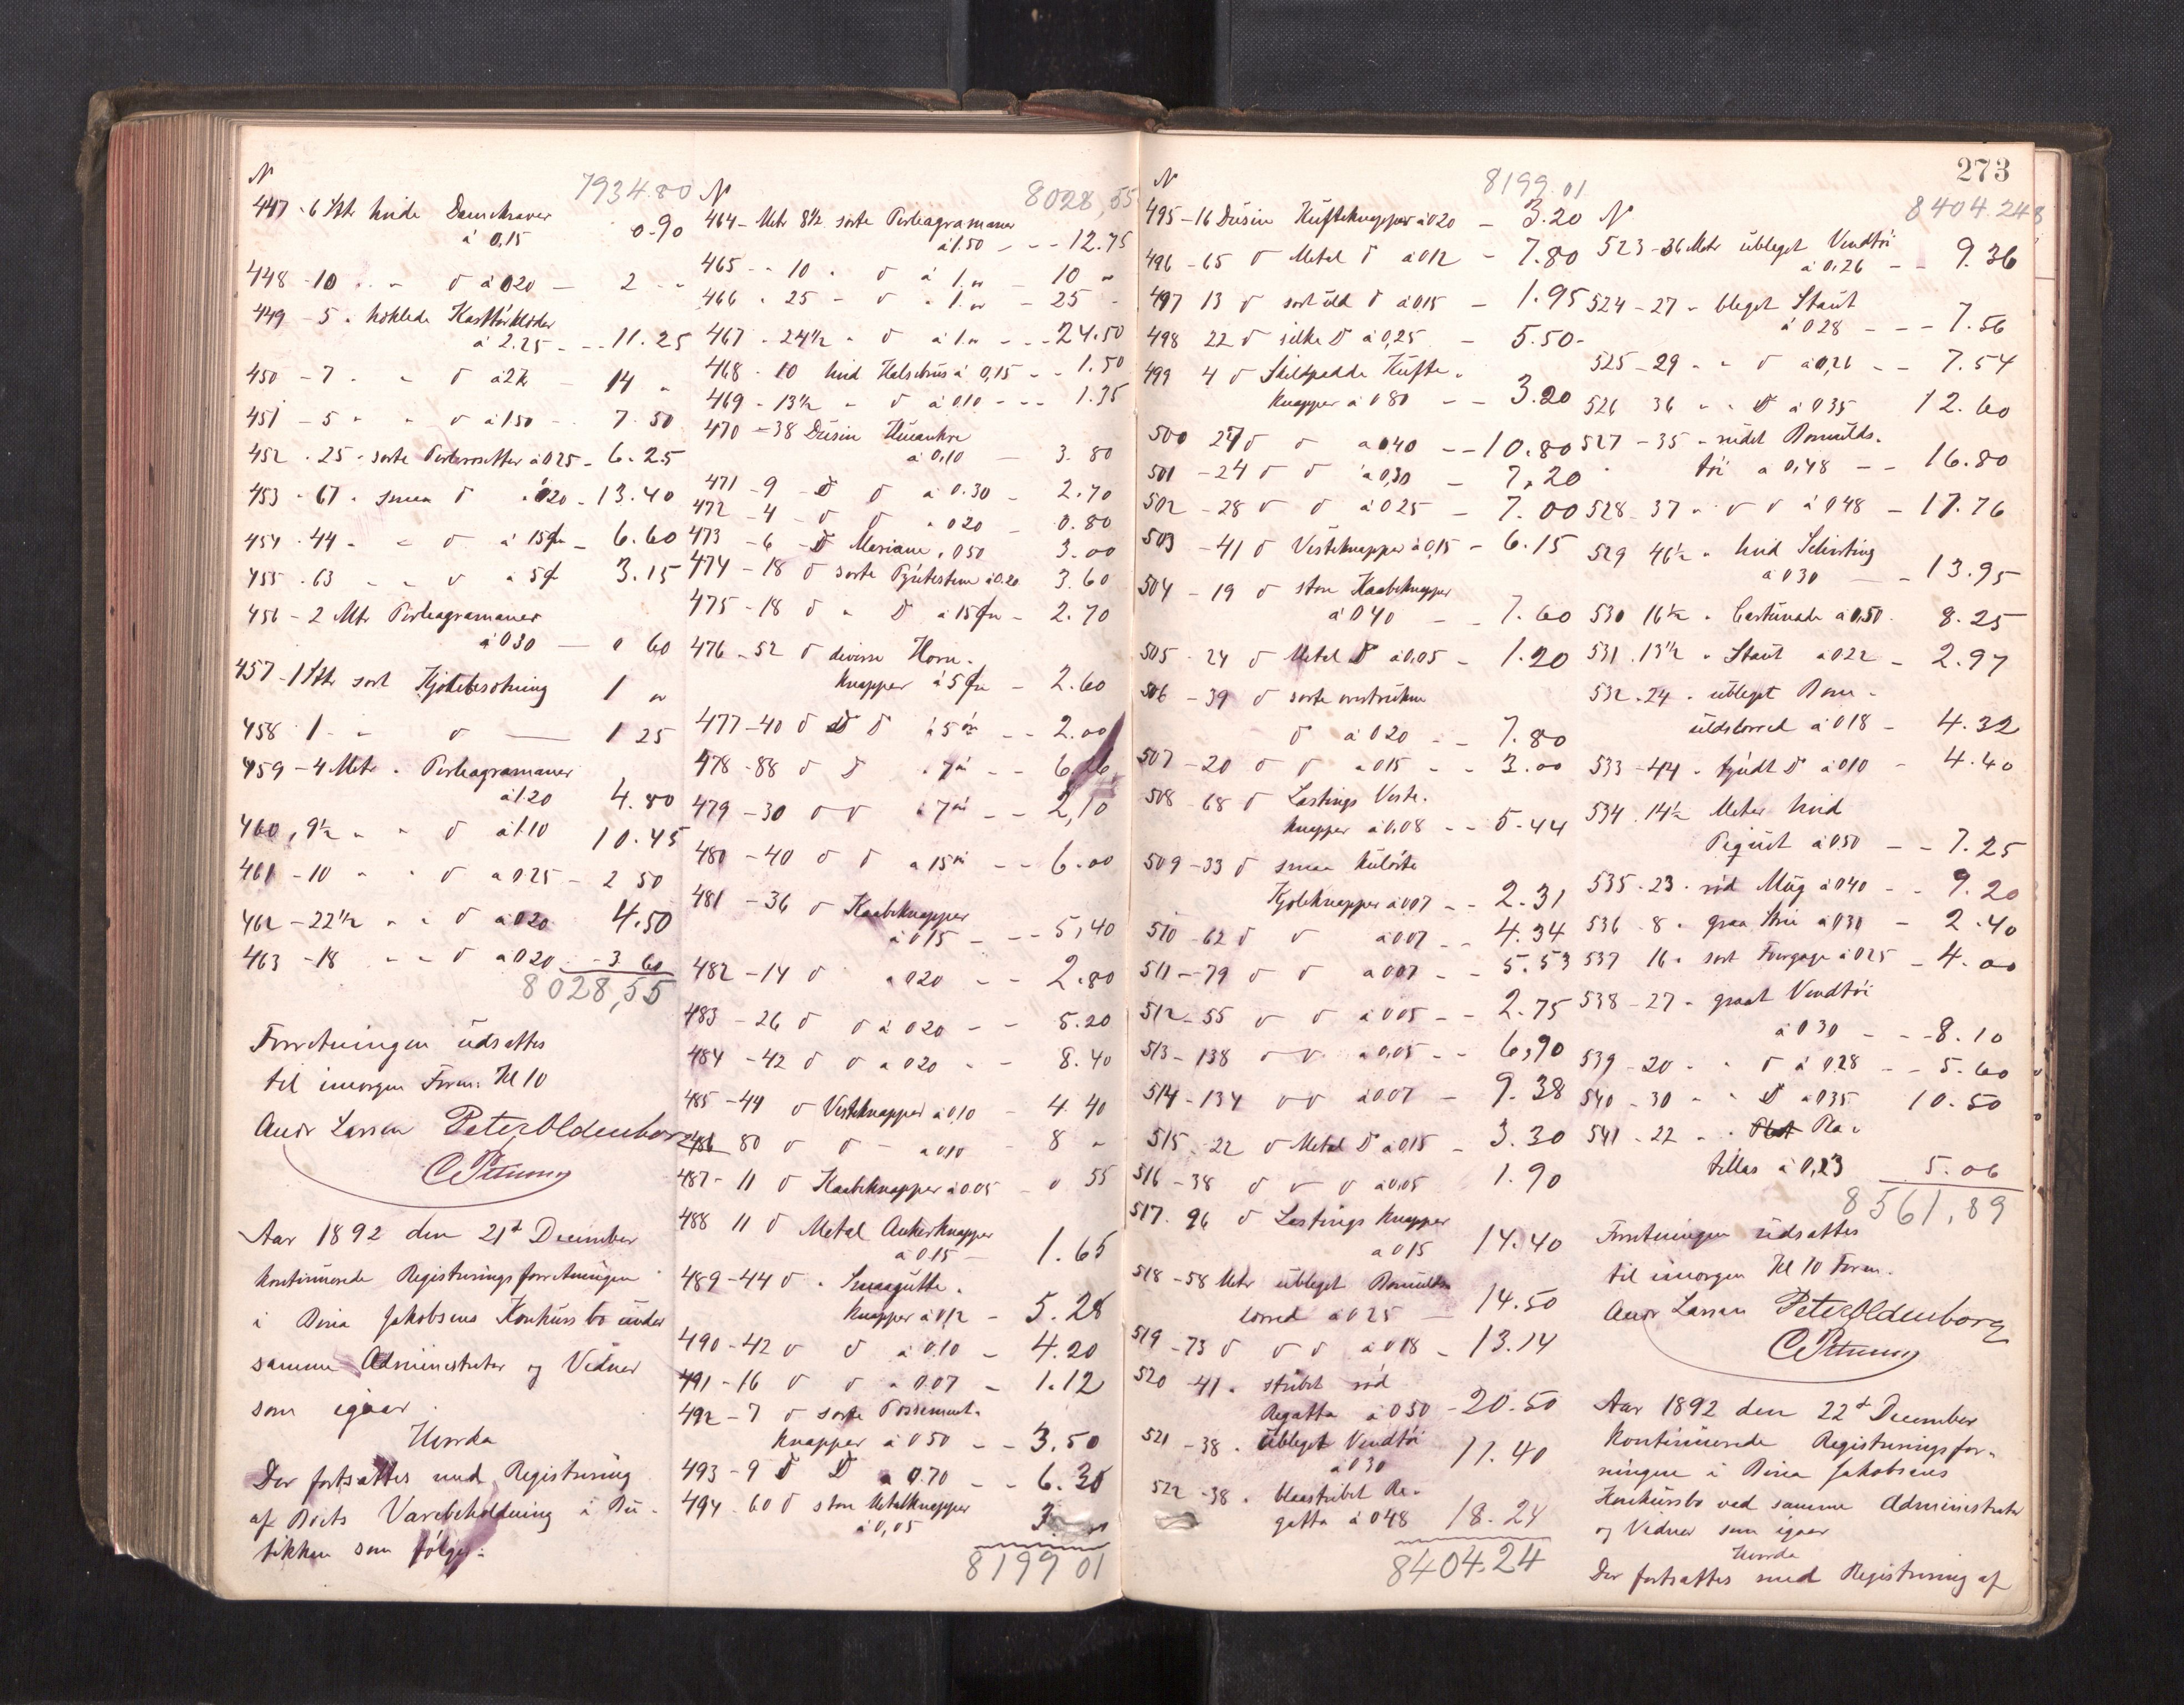 N
7934.80
447 - 6 Stk hvide Damekraver
à 0,15 0.90
448 - 10 " " d à 020 - 2 "
449 - 5 " hæklede
à 2.25 - - 11.25
450 - 7 " " d à 2 - 14 "
451 - 5 " " d à 1.50 - 7.50
452 - 25 - sorte Perlerosetter à 025 - 6.25
453 - 67 - smaa d à 020 - 13.40
454 - 44 - - d à 15 - 6.60
455 - 63 - - d à 5 3.15
456 - 2 Mtr Perleagramaner
à 030 - 0 60
457 - 1 Stk sort Kjolebesætning 1 "
458 1 - - d - 1 25
459 - 4 Mtr - Perleagramaner
à 1.20 4.80
460, 9½ - - d à 1.10 10.45
461 - 10 - - d à 025 - 2 50
462 - 22½ - - d à 020 4.50
463 - 18 - - d à 020 - 3 60
8028,55
Forretningen udsattes
til imorgen Form. Kl 10
Andr Larsen Peter Oldenborg
Aar 1892 den 21d December
kontinuerede Registreringsforretningen
i Jakobsens Konkursbo under
samme Administrator og Vidner
som igaar.
Hvorda
Der fortsattes med Registrering
af Boets Varebeholdning i Bu-
tikken som følger:
N
8028,55
464 - Mtr 8½ sorte Perleagramaner
à 1.50 - - 12.75
465 - - 10 - d à 1.- 10 -
466 - 25 - d - 1.- - 25 -
467 - 24½ - d à 1.- - - 24.50
468 - 10 hvid Halsebrus à 0,15 - - 1.50
469 - 13½ - d à 0.10 - - - 1.35
470 - 38 Dusin
à 0,10 - 3.80
471 - 9 - d d à 0.30 - 2.70
472 - 4 - d d - 020 - 0.80
473 - 6 - d - 050 3.00
474 - 18 d sorte à 0.20 3.60
475 - 18 d - d à 15 - 2.70
476 - 52 d diverse Horn-
knapper à 5 - 2.60
477 - 40 d d d à 5 - - 2.00
478 - 88 d d - 7 - - 6,16
479 - 30 d d - 7 - - 2,10
480 - 40 d d à 15 - - 6.00
481 - 36 d Kaabeknapper
à 015 - - - 5,40
482 - 14 d à 020 - - 2.80
483 - 26 d d à 020 - - 5.20
484 - 42 d d à 020 - - 8.40
485 - 44 d Vesteknapper à 0,10 - 4.40
486 80 d d - à 0.10 - 8 "
487 - 11 d Kaabeknapper à 0.05 - 0 55
488 11 d Metal Ankerknapper
à 0.15 - 1.65
489 - 44 d -
knapper à 0,12 - 5.28
490 - 42 d d à 0.10 - 4.20
491 - 16 d d - 0.07 - 1.12
492 - 7 d sorte Possement-
knapper à 050 - - 3.50
493 - 9 d d à 0.70 - - 6.30
494 - 60 d store Metalknapper
à 0,05 3
8199 01
N
8199.01
495 - 16 Dusin Kufteknapper à 020 - 3.20
496 - 65 d Metal d à 012 - 7.80
497 13 d sort uld d à 015 - 1.95
498 22 d silke d à 0,25 - 5.50 -
499 4 d Skildpadde Kufte-
knapper à 0 80 - - 3.20
500 27 d d à 0,40 - - 10.80
501 - 24 d d à 0,30 - 7,20
502 - 28 d d à 025 - 7.00
503 - 41 d Vesteknapper à 0,15 - 6.15
504 - 19 d store Kaabeknapper
à 040 - - 7.60
505 - 24 d Metal d à 0,05 - 1.20
506 - 39 d sorte overtrukne
d à 020 - - 7.80
507 - 20 d d à 015 - - 3.00
508 - 68 d Lastings Veste-
knapper à 0,08 - - 5.44
509 - 33 d smaa kulørte
Kjoleknapper à 007 - - 2.31
510 - 62 d d à 007 - - 4.34
511 - 79 d d à 007 - - 5.53
512 - 55 d d à 005 - - 2.75
513 - 138 d d à 0,05 - - 6,90
514 - 134 d d à 0.07 - 9.38
515 - 22 d Metal d à 0,15 - 3.30
516 - 38 d d d à 0,05 1.90
517. 96 d Lastings knapper
à 015 14.40
518 - 58 Mtr ubleget Bomulds-
lærred à 0 25 - 14.50
519 - 73 d d d à 018 - 13.14
520 41 - stribet rød
Regatta à 050 - 20.50
521 - 38 - ubleget Vendtøi
à 030 11.40
522 - 38 - blaastribet Re-
gatta à 048 18.24
8404.24
273
N
8404.24
523 - 36 Mtr ubleget Vendtøi
à 0,26 - - 9.36
524 - 27 - bleget Stout
à 028 - - - 7.56
525 - 29 - - d à 0,26 - - 7.54
526 36 - - d à 035 12.60
527 - 35 - Bomulds-
tøi à 0,48 - - 16.80
528 - 37 - d d à 048 - 17.76
529 46½ - hvid Schirting
à 030 - - 13.95
530 16½ - à 0,50 - 8.25
531. 13½ - Stout à 022 - 2.97
532 - 24 - ubleget Bom-
uldslærred à 018 - 4.32
533 - 44 - d à 010 - 4.40
534. 14½ Meter hvid
Piquet à 050 - - 7.25
535 - 23 - rød à 040 - - 9.20
536 8 - graa à 030 - 2.40
537 16 - sort à 025 - 4.00
538 - 27 - graat Vendtøi
à 030 - - - 8.10
539 - 20 - - d à 0.28 - - 5.60
540 - 30 - - d à 035 10.50
541 - 22 - -
à 0,23 5.06
8561,89
Forretningen udsattes
til imorgen Kl 10 Form.
Andr Larsen Peter Oldenborg
Aar 1892 den 22d December
kontinuerede Registreringsfor-
ningen i Jakobsens
Konkursbo ved samme Administrator
og Vidner som igaar
Hvorda
Der fortsattes med Registrering af